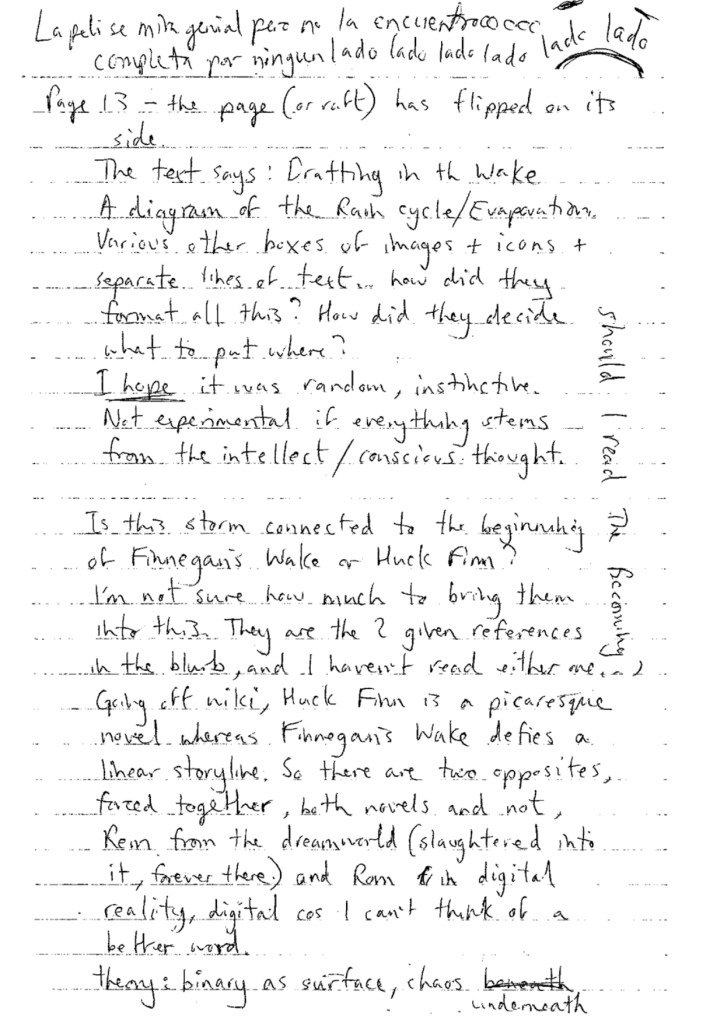 La peli se mira genial pero no la encuentrooooccc
completa por ningun lado lado lado lado lado lado
Page 13 - the page (or raft) has flipped on its
side.
The text says: Drafting in th Wake
A diagram of the Rain cycle/Evaporation.
Various other boxes of images + icons +
separate lines of text... how did they
format all this? How did they decide
what to put where?
I hope it was random, instinctive.
Not experimental if everything stems
from the intellect/conscious thought.
Is this storm connected to the beginning
of Finnegan's Wake or Huck Finn?
I'm not sure how much to bring them
into this. They are the 2 given references
in the blurb, and I haven't read either one...
Going off wiki, Huck Finn is a picaresque
novel whereas Finnegan's Wake defies a
linear storyline. So there are two opposites,
forced together, both novels and not,
Rem from the dreamworld (slaughtered into
it, forever there) and Rom in digital
reality, digital cos I can't think of a
better word.
theory: binary as surface, chaos beneath
underneath
should I read The Becoming?